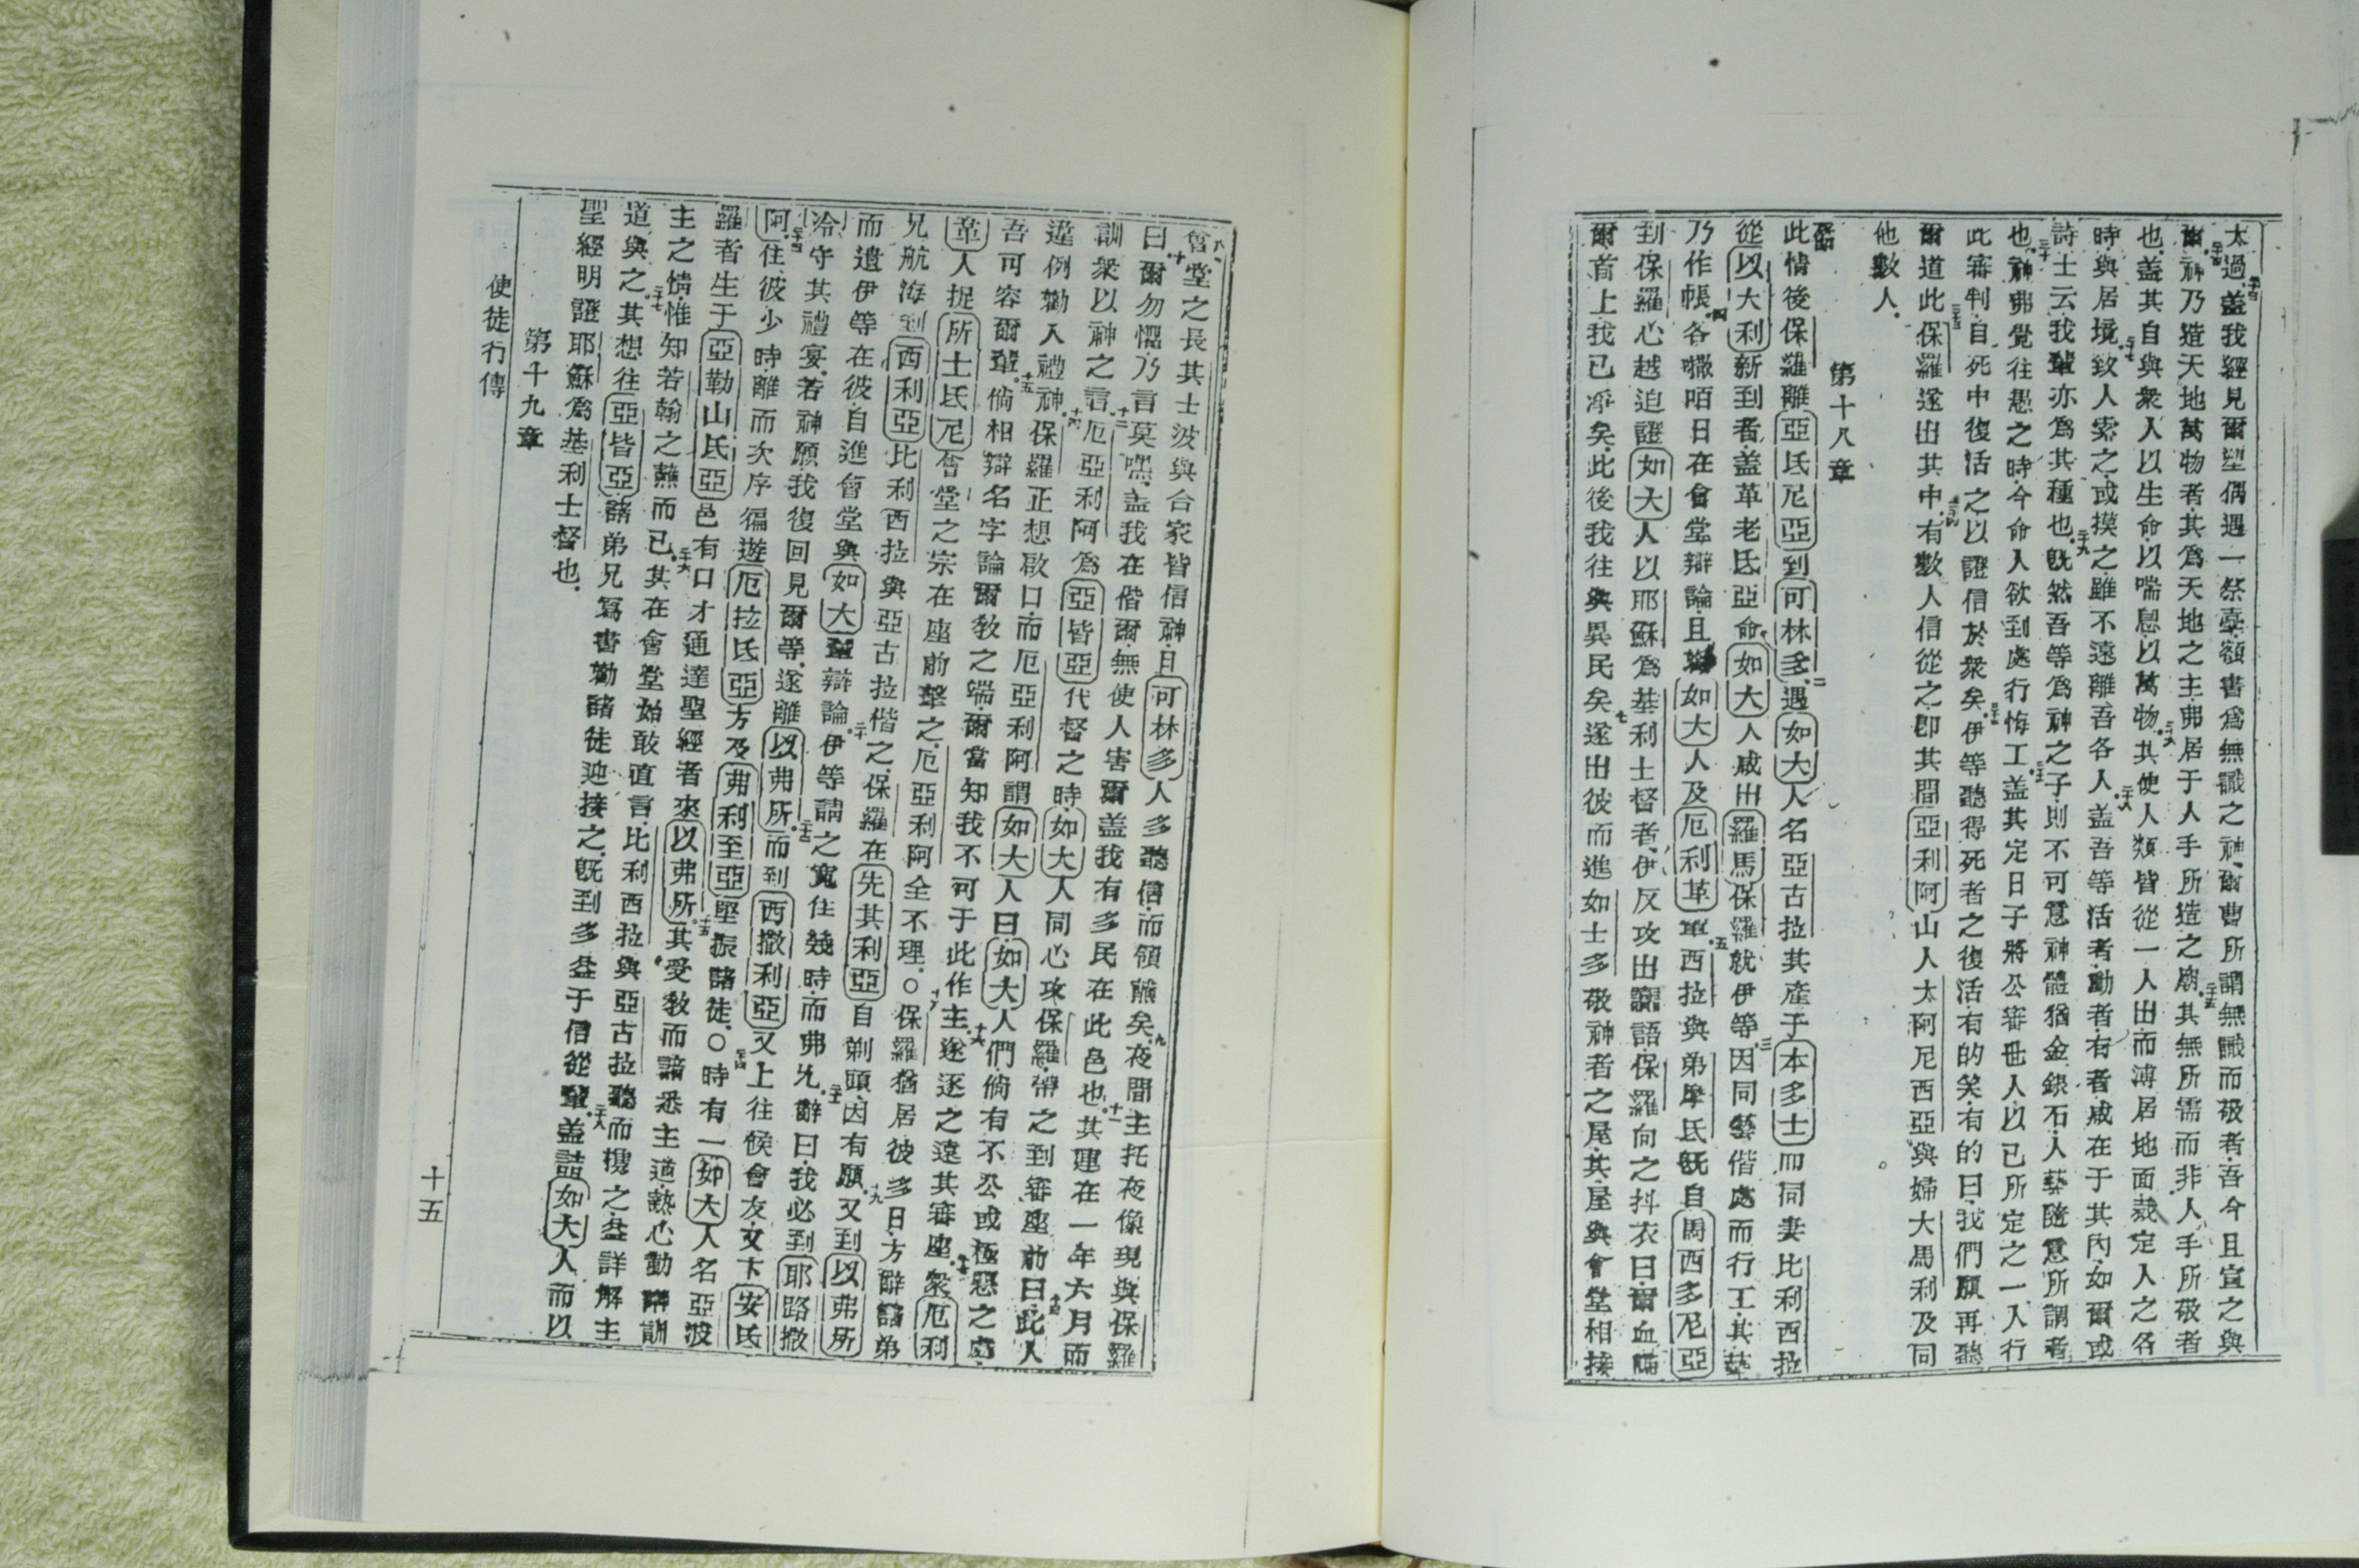 太過蓋我經見爾塑偶遇一祭臺額書爲無識之神爾曹所謂無識而敬者吾今且宣之與
爾神乃造天地萬物者其爲天地之主弗居于人手所造之廟其無所需而非人手所敬者
也蓋其自與衆人以生命以喘息以萬物其使人類皆從一人出而溥居地面裁定人之各
時與居境致人索之或摸之雖不遠離吾各人蓋吾等活者動者有者咸在于其內如爾或
詩士云我輩亦爲其種也旣然吾等爲神之子則不可意神體猶金銀石人藝隨意所謂者
也神弗覺往愚之時今命人欲到處行悔工蓋其定日子將公審世人以已所定之一人行
此審判自死中復活之以證信於衆矣伊等聽得死者之復活有的笑有的曰我們願再聽
爾道此保羅遂出其中有數人信從之卽其間亞利阿山人太阿尼西亞與婦大馬利及同
他數人
第十八章
此情後保羅離亞氐尼亞到可林多遇如大人名亞古拉其產于本多士而同妻比利西拉
從以大利新到者蓋革老氐亞命如大人咸出羅馬保羅就伊等因同藝偕處而行工其藝
乃作帳各嘬咟日在會堂辯論且如大人及厄利革西拉與弟摩氐旣自馬西多尼亞
到保羅心越迫證如大人以耶穌爲基利士督者伊反攻出語保羅向之抖衣曰爾血
爾首上我已凈矣此後我往與異民矣遂出彼而進如士多敬神者之屋其屋與會堂相接
會堂之長其士波與合家皆信神且可林多人多聽信而領蘸矣夜間主托夜像現與保羅
曰爾勿慍乃言莫嘿蓋我在偕爾無使人害爾蓋我有多民在此邑也其建在一年六月而
訓衆以神之言厄亞利阿爲亞皆亞代督之時如大人同心攻保羅帶之到審座前曰此人
違例勸人禮神保羅正想啟口而厄亞利阿謂如大人曰如大人們倘有不公或極惡之處
吾可容爾輩倘相辯名字論爾敎之端爾當知我不可于此作主遂逐之遠其審座衆厄利
革人捉所士氐尼會堂之宗在座前擊之厄亞利阿全不理○保羅猶居彼多日方辭諸弟
兄航海到西利亞比利西拉與亞古拉偕之保羅在先其利亞自剃頭因有願又到以弗所
而遺伊等在彼自進會堂與如大輩辯論伊等請之寬住幾時而弗允辭曰我必到耶路撒
冷守其禮宴若神願我復回見爾等遂離以弗所而到西撒利亞又上往候會友又下安氐
阿住彼少時離而次序徧遊厄拉氐亞方及弗利至亞堅振諸徒○時有一如大人名亞波
羅者生于亞勒山氐亞邑有口才通達聖經者來以弗所其受敎而諳悉主道熱心勤訓
主之情惟知若翰之蘸而已其在會堂始敢直言比利西拉與亞古拉聽而攬之益詳解主
道與之其想往亞皆亞諸弟兄寫書勸諸徒迎接之旣到多益于信從輩蓋詰如大人而以
聖經明證耶穌爲基利士督也
第十九章
使徒行傳
十五